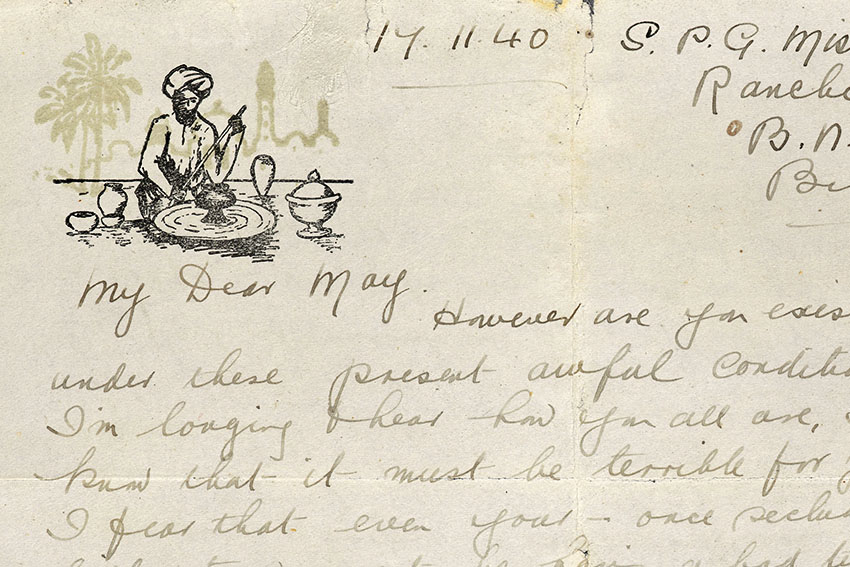 17.11.40 S. P. G. Mis
Ranchi
B. N.
My Dear May.
However are you exis
under these present awful conditio
I'm longing & hear how you all are,
know that it must be terrible for
I fear that even your - once seclu
a bad